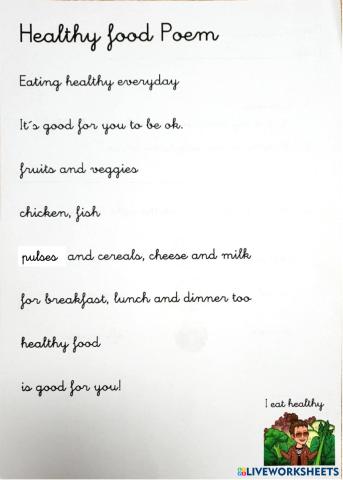 Healthy food Poem
Eating healthy everyday
It´s good for you to be ok.
fruits and veggies
chicken, fish
pulses and cereals, cheese and milk
for breakfast, lunch and dinner too
healthy food
is good for you!
I eat healthy
LIVEWORKSHEETS